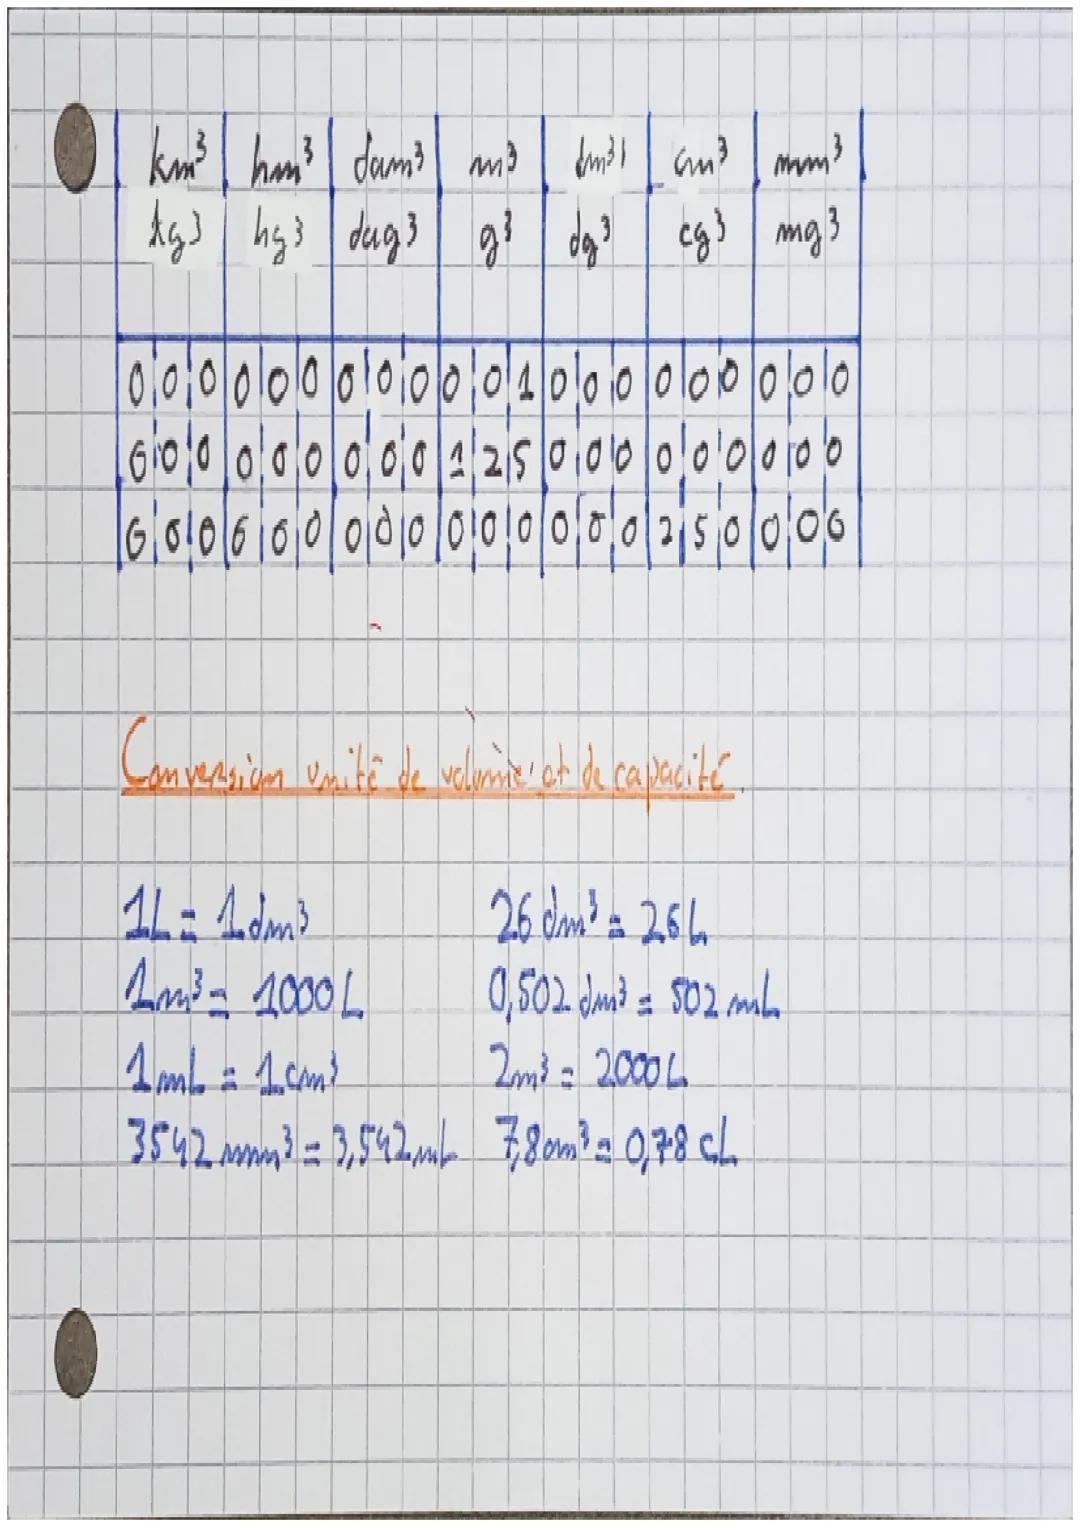 km³ hm³ dam³ m³ dm³ cm³ mm³
kg³ hg³ dag³ g³ dg³ cg³ mg³
0 0 0 0 0 0 0 0 0 0 0 1 0 0 0 0 0 0 0 0 0
0 0 0 0 0 0 0 0 0 1 2 5 0 0 0 0 0 0 0 0 0
0 0 0 0 0 0 0 0 0 0 0 0 0 0 0 2 5 0 0 0 0
Conversion unité de volume et de capacité.
1L = 1dm³
1m³ = 1000L
1mL = 1cm³
3542 mm³ = 3,542mL
26 dm³ = 26L
0,502 dm³ = 502 mL
2m³ = 2000L
7,8cm³ = 0,78 cL